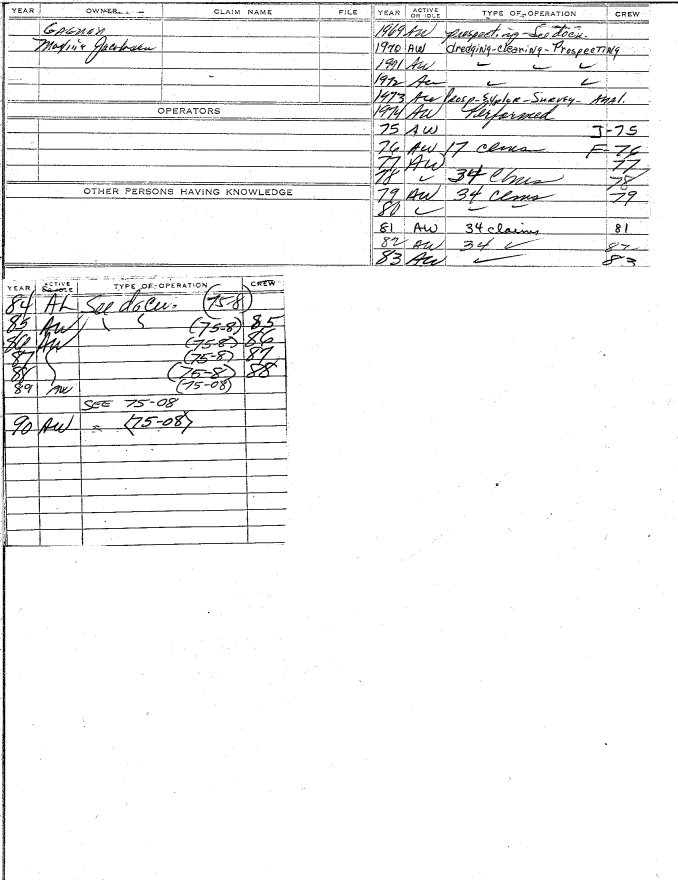 YEAR OWNER CLAIM NAME FILE
Gagnon
Maxine Jacobsen
OPERATORS
OTHER PERSONS HAVING KNOWLEDGE
YEAR ACTIVE OR IDLE TYPE OF OPERATION CREW
1969 AW prospecting - See docu.
1970 AW dredging-clearing-Prospecting
1971 AW ✓ ✓ ✓
1972 AW ✓ ✓
1973 AW Prosp-Explor-Survey- Anal.
1974 AW Performed
75 AW J-75
76 AW 17 clms F-76
77 AW 77
78 ✓ 34 Clms 78
79 AW 34 clms 79
80 ✓ ✓ ✓
81 AW 34 claims 81
82 AW 34 ✓ 82
83 AW ✓ 83
YEAR ACTIVE OR IDLE TYPE OF OPERATION CREW
84 AL See docu. (75-8)
85 AW " " (75-8) 85
86 AW (75-8) 86
87 (75-8) 87
88 (75-8) 88
89 AW (75-08)
SEE 75-08
90 AW " (75-08)